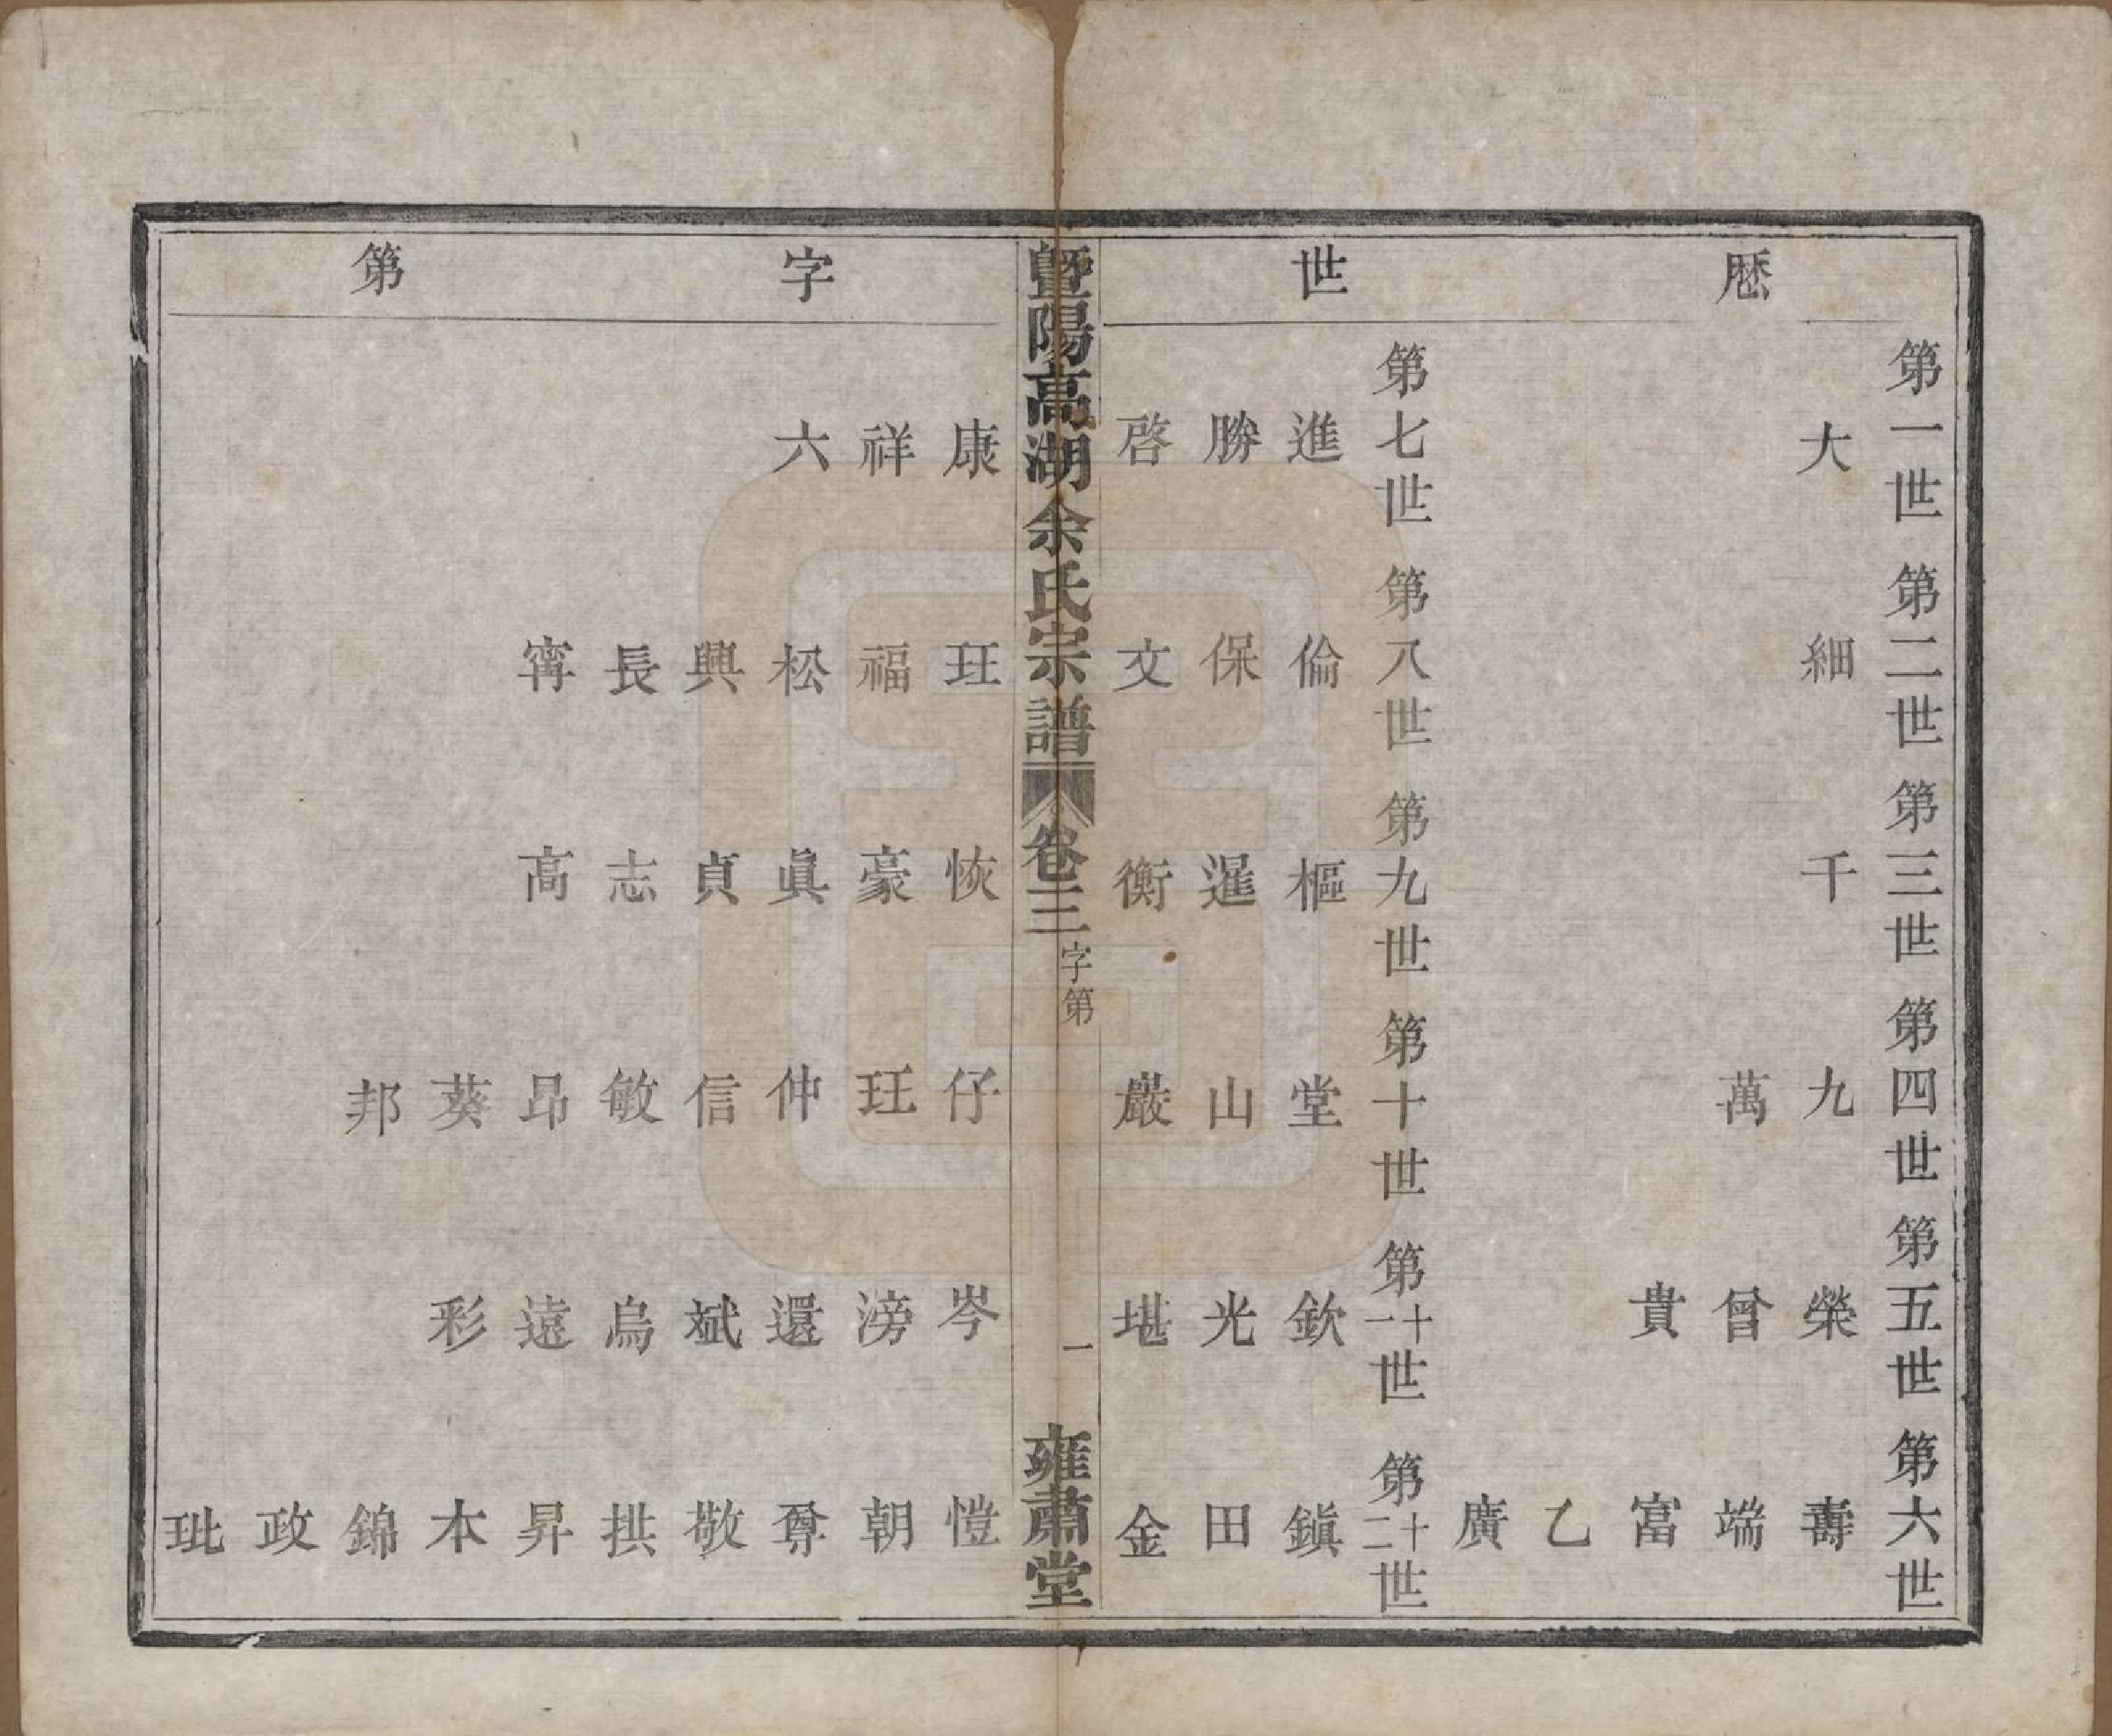 曆世字第
第一世 第二世 第三世 第四世 第五世 第六世
大 細 千 九 榮 壽
萬 曾 端
貴 富
乙
廣
第七世 第八世 第九世 第十世 第十一世 第十二世
進 倫 樞 堂 欽 鎭
勝 保 暹 山 光 田
啓 文 衡 巖 堪 金
暨陽高湖余氏宗譜 卷三 字第 一 雍肅堂
康 玨 恢 仔 岑 愷
祥 福 豪 玨 滂 朝
六 松 眞 仲 還 尊
興 貞 信 斌 敬
長 志 敏 烏 拱
甯 高 昂 遠 昇
葵 彩 本
邦 錦
政
玼